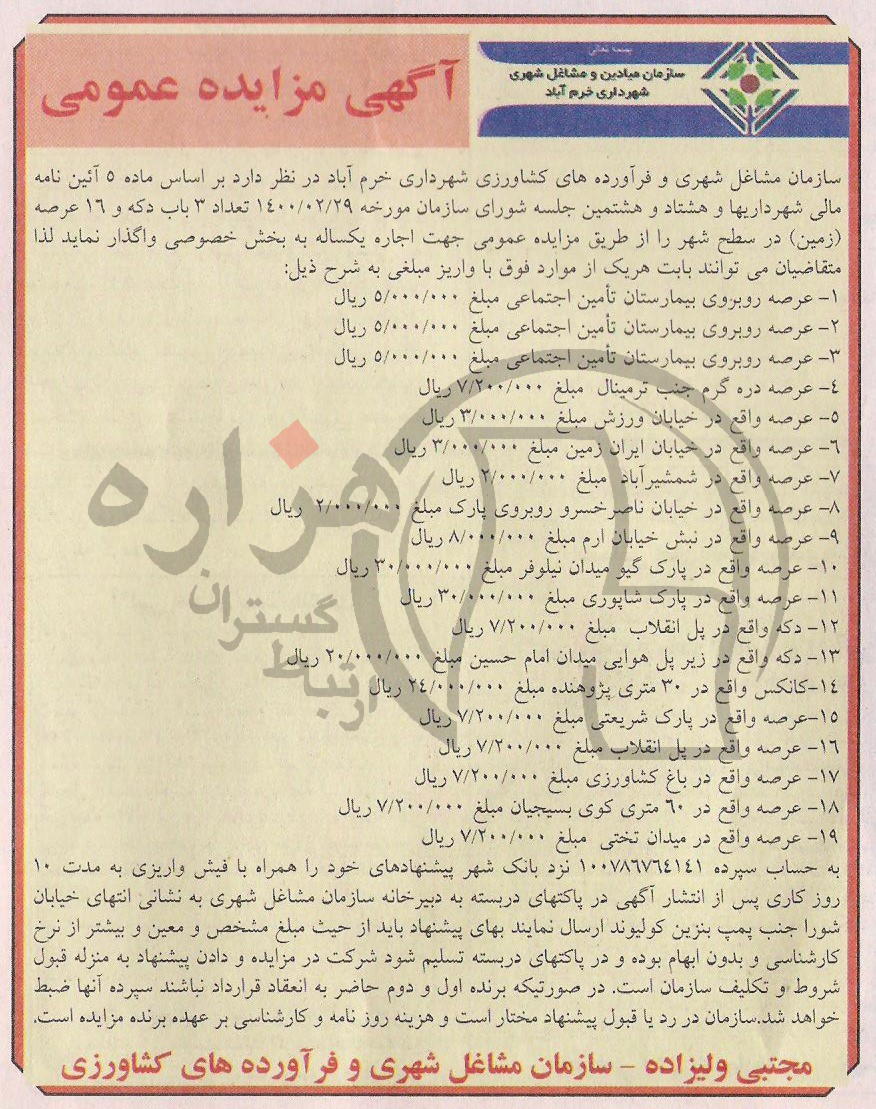 بسمه تعالی
سازمان میادین و مشاغل شهری
شهرداری خرم آباد
آگهی مزایده عمومی
سازمان مشاغل شهری و فرآورده های کشاورزی شهرداری خرم آباد در نظر دارد بر اساس ماده ۵ آئین نامه
مالی شهرداریها و هشتاد و هشتمین جلسه شورای سازمان مورخه ۱۴۰۰/۰۲/۲۹ تعداد ۳ باب دکه و ۱۶ عرصه
(زمین) در سطح شهر را از طریق مزایده عمومی جهت اجاره یکساله به بخش خصوصی واگذار نماید لذا
متقاضیان می توانند بابت هریک از موارد فوق با واریز مبلغی به شرح ذیل:
۱- عرصه روبروی بیمارستان تأمین اجتماعی مبلغ ۵/۰۰۰/۰۰۰ ریال
۲- عرصه روبروی بیمارستان تأمین اجتماعی مبلغ ۵/۰۰۰/۰۰۰ ریال
۳- عرصه روبروی بیمارستان تأمین اجتماعی مبلغ ۵/۰۰۰/۰۰۰ ریال
۴- عرصه دره گرم جنب ترمینال مبلغ ۷/۲۰۰/۰۰۰ ریال
۵- عرصه واقع در خیابان ورزش مبلغ ۳/۰۰۰/۰۰۰ ریال
۶- عرصه واقع در خیابان ایران زمین مبلغ ۳/۰۰۰/۰۰۰ ریال
۷- عرصه واقع در شمشیرآباد مبلغ ۲/۰۰۰/۰۰۰ ریال
۸- عرصه واقع در خیابان ناصرخسرو روبروی پارک مبلغ ۲/۰۰۰/۰۰۰ ریال
۹- عرصه واقع در نبش خیابان ارم مبلغ ۸/۰۰۰/۰۰۰ ریال
۱۰- عرصه واقع در پارک گیو میدان نیلوفر مبلغ ۳۰/۰۰۰/۰۰۰ ریال
۱۱- عرصه واقع در پارک شاپوری مبلغ ۳۰/۰۰۰/۰۰۰ ریال
۱۲- دکه واقع در پل انقلاب مبلغ ۷/۲۰۰/۰۰۰ ریال
۱۳- دکه واقع در زیر پل هوایی میدان امام حسین مبلغ ۲۰/۰۰۰/۰۰۰ ریال
۱۴-کانکس واقع در ۳۰ متری پژوهنده مبلغ ۲۴/۰۰۰/۰۰۰ ریال
۱۵-عرصه واقع در پارک شریعتی مبلغ ۷/۲۰۰/۰۰۰ ریال
۱۶- عرصه واقع در پل انقلاب مبلغ ۷/۲۰۰/۰۰۰ ریال
۱۷- عرصه واقع در باغ کشاورزی مبلغ ۷/۲۰۰/۰۰۰ ریال
۱۸- عرصه واقع در ۶۰ متری کوی بسیجیان مبلغ ۷/۲۰۰/۰۰۰ ریال
۱۹- عرصه واقع در میدان تختی مبلغ ۷/۲۰۰/۰۰۰ ریال
به حساب سپرده ۱۰۰۷۸۶۷۶۴۱۴۱ نزد بانک شهر پیشنهادهای خود را همراه با فیش واریزی به مدت ۱۰
روز کاری پس از انتشار آگهی در پاکتهای دربسته به دبیرخانه سازمان مشاغل شهری به نشانی انتهای خیابان
شورا جنب پمپ بنزین کولیوند ارسال نمایند بهای پیشنهاد باید از حیث مبلغ مشخص و معین و بیشتر از نرخ
کارشناسی و بدون ابهام بوده و در پاکتهای دربسته تسلیم شود شرکت در مزایده و دادن پیشنهاد به منزله قبول
شروط و تکلیف سازمان است. در صورتیکه برنده اول و دوم حاضر به انعقاد قرارداد نباشند سپرده آنها ضبط
خواهد شد.سازمان در رد یا قبول پیشنهاد مختار است و هزینه روز نامه و کارشناسی بر عهده برنده مزایده است.
مجتبی ولیزاده - سازمان مشاغل شهری و فرآورده های کشاورزی
هزاره
ارتباط گستران